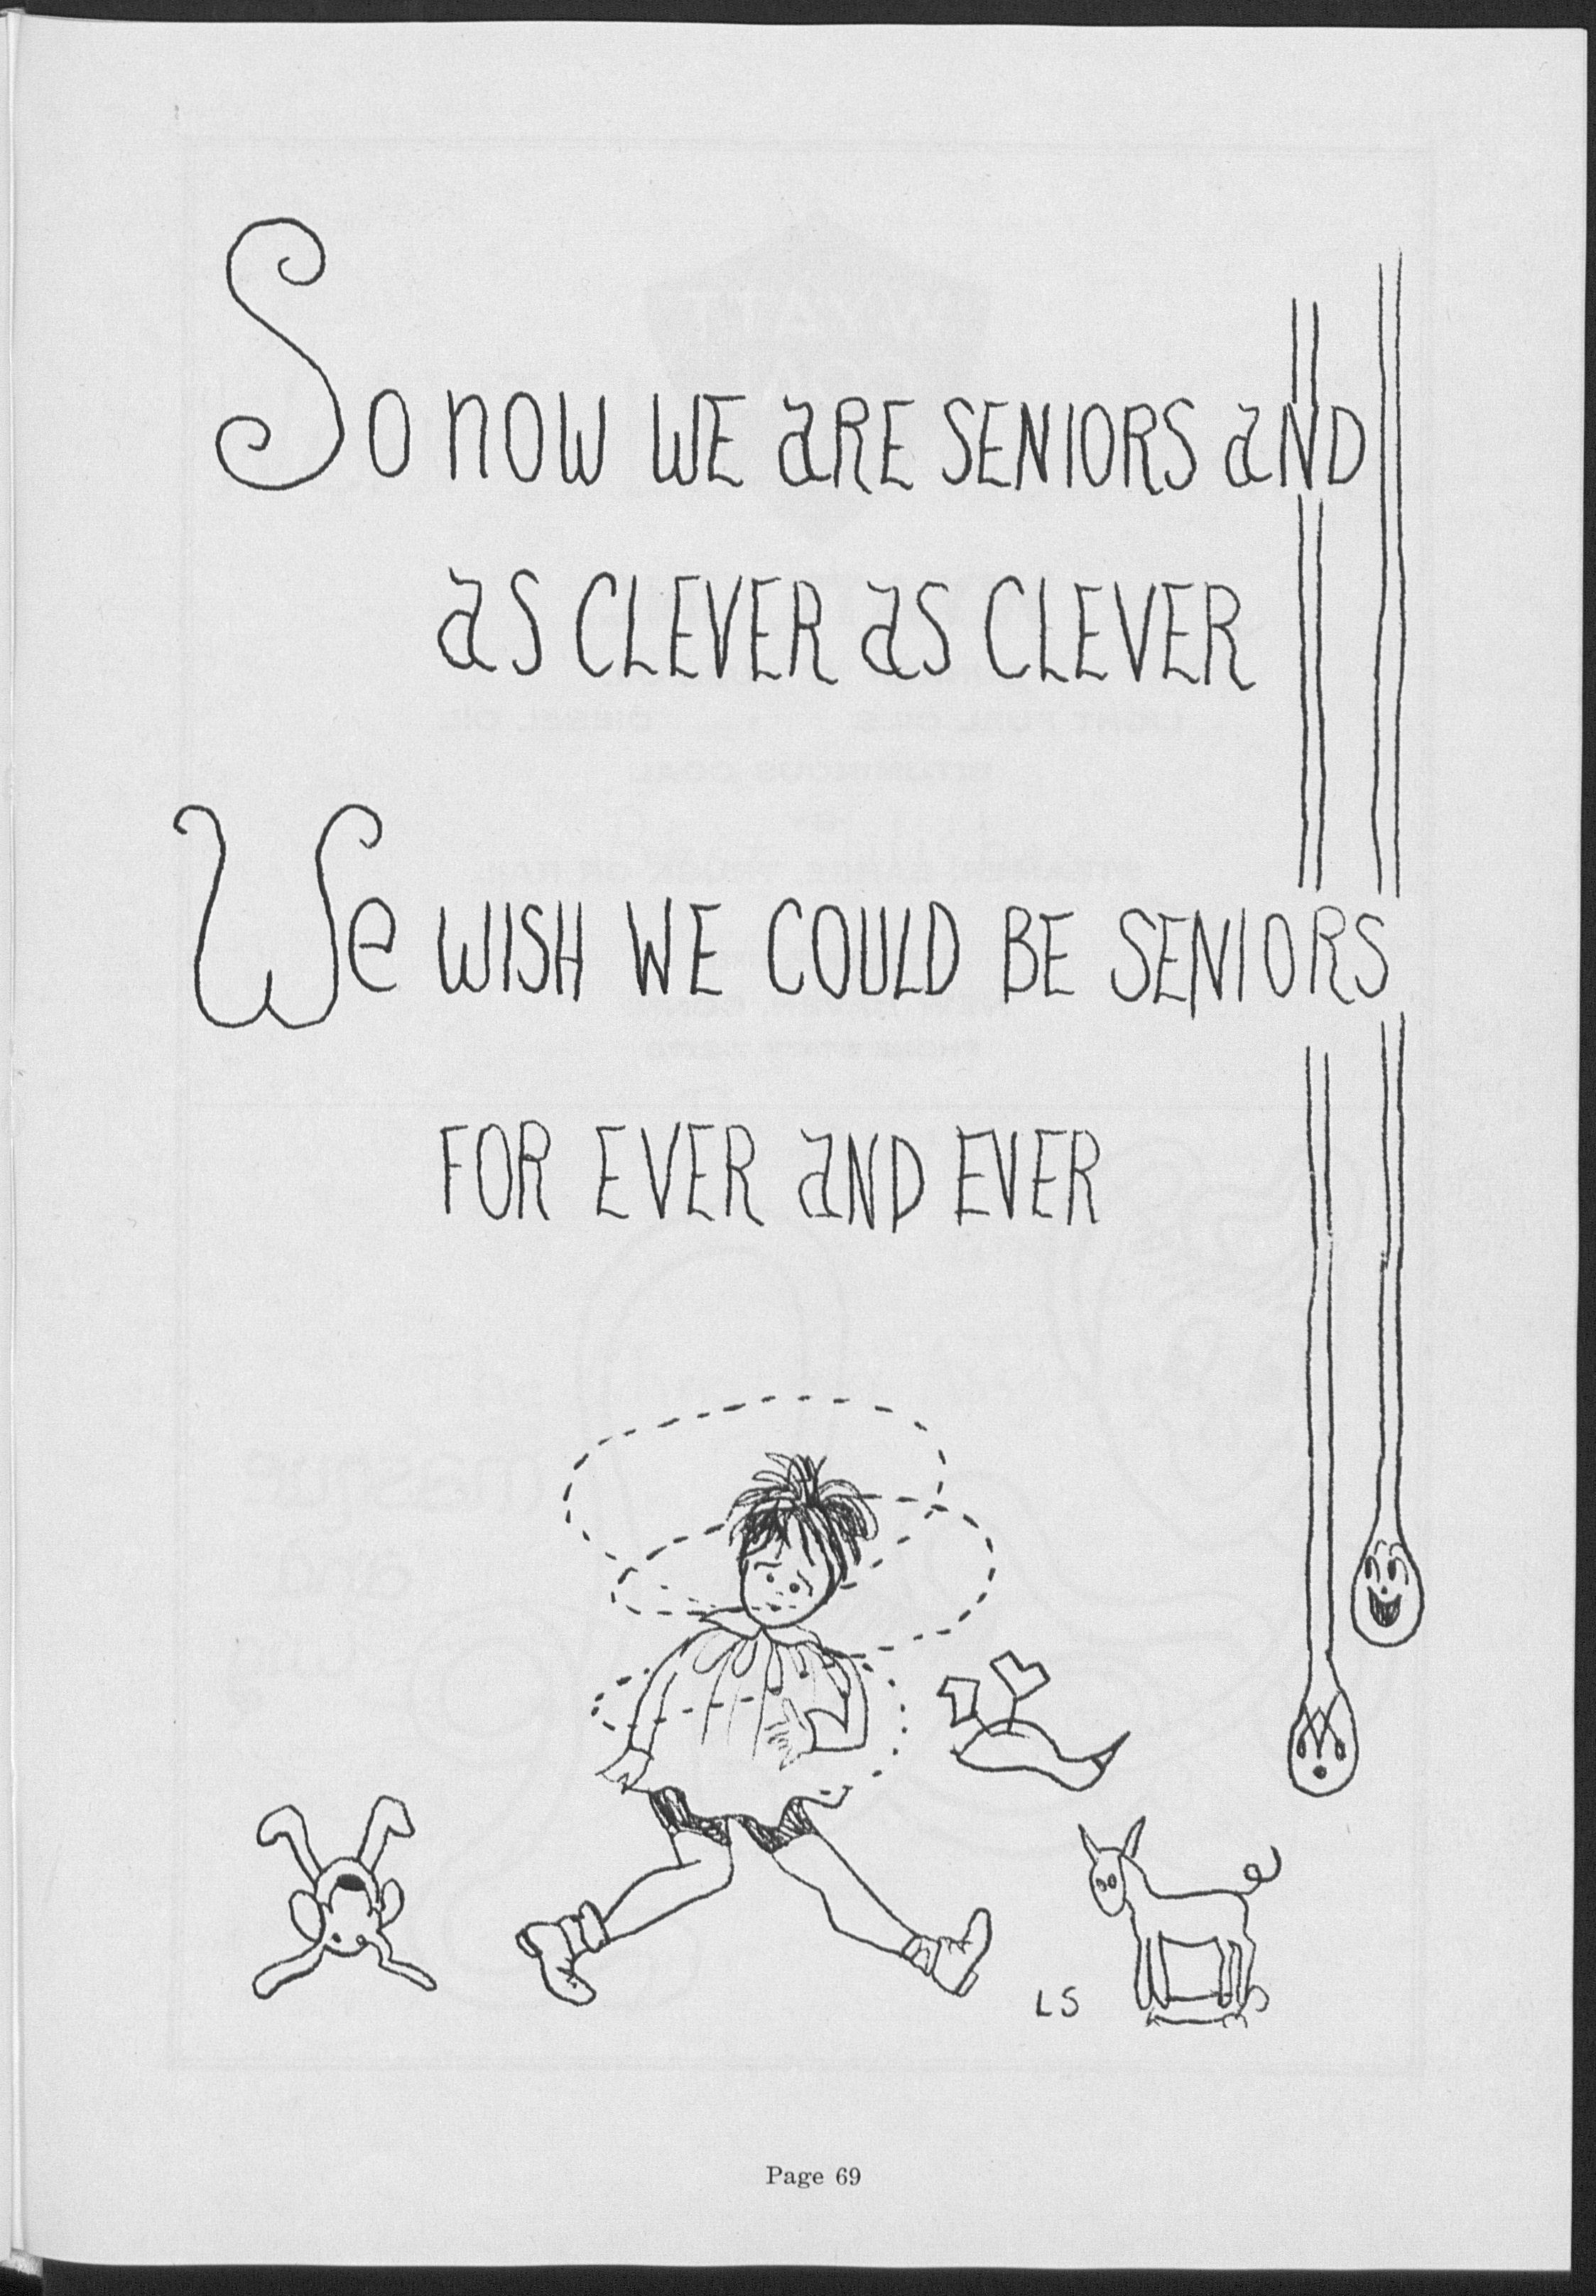 So now WE aRE SENIORS aND
aS CLEVER aS CLEVER
We WISH WE COULD BE SENIORS
FOR EVER aND EVER
LS
Page 69